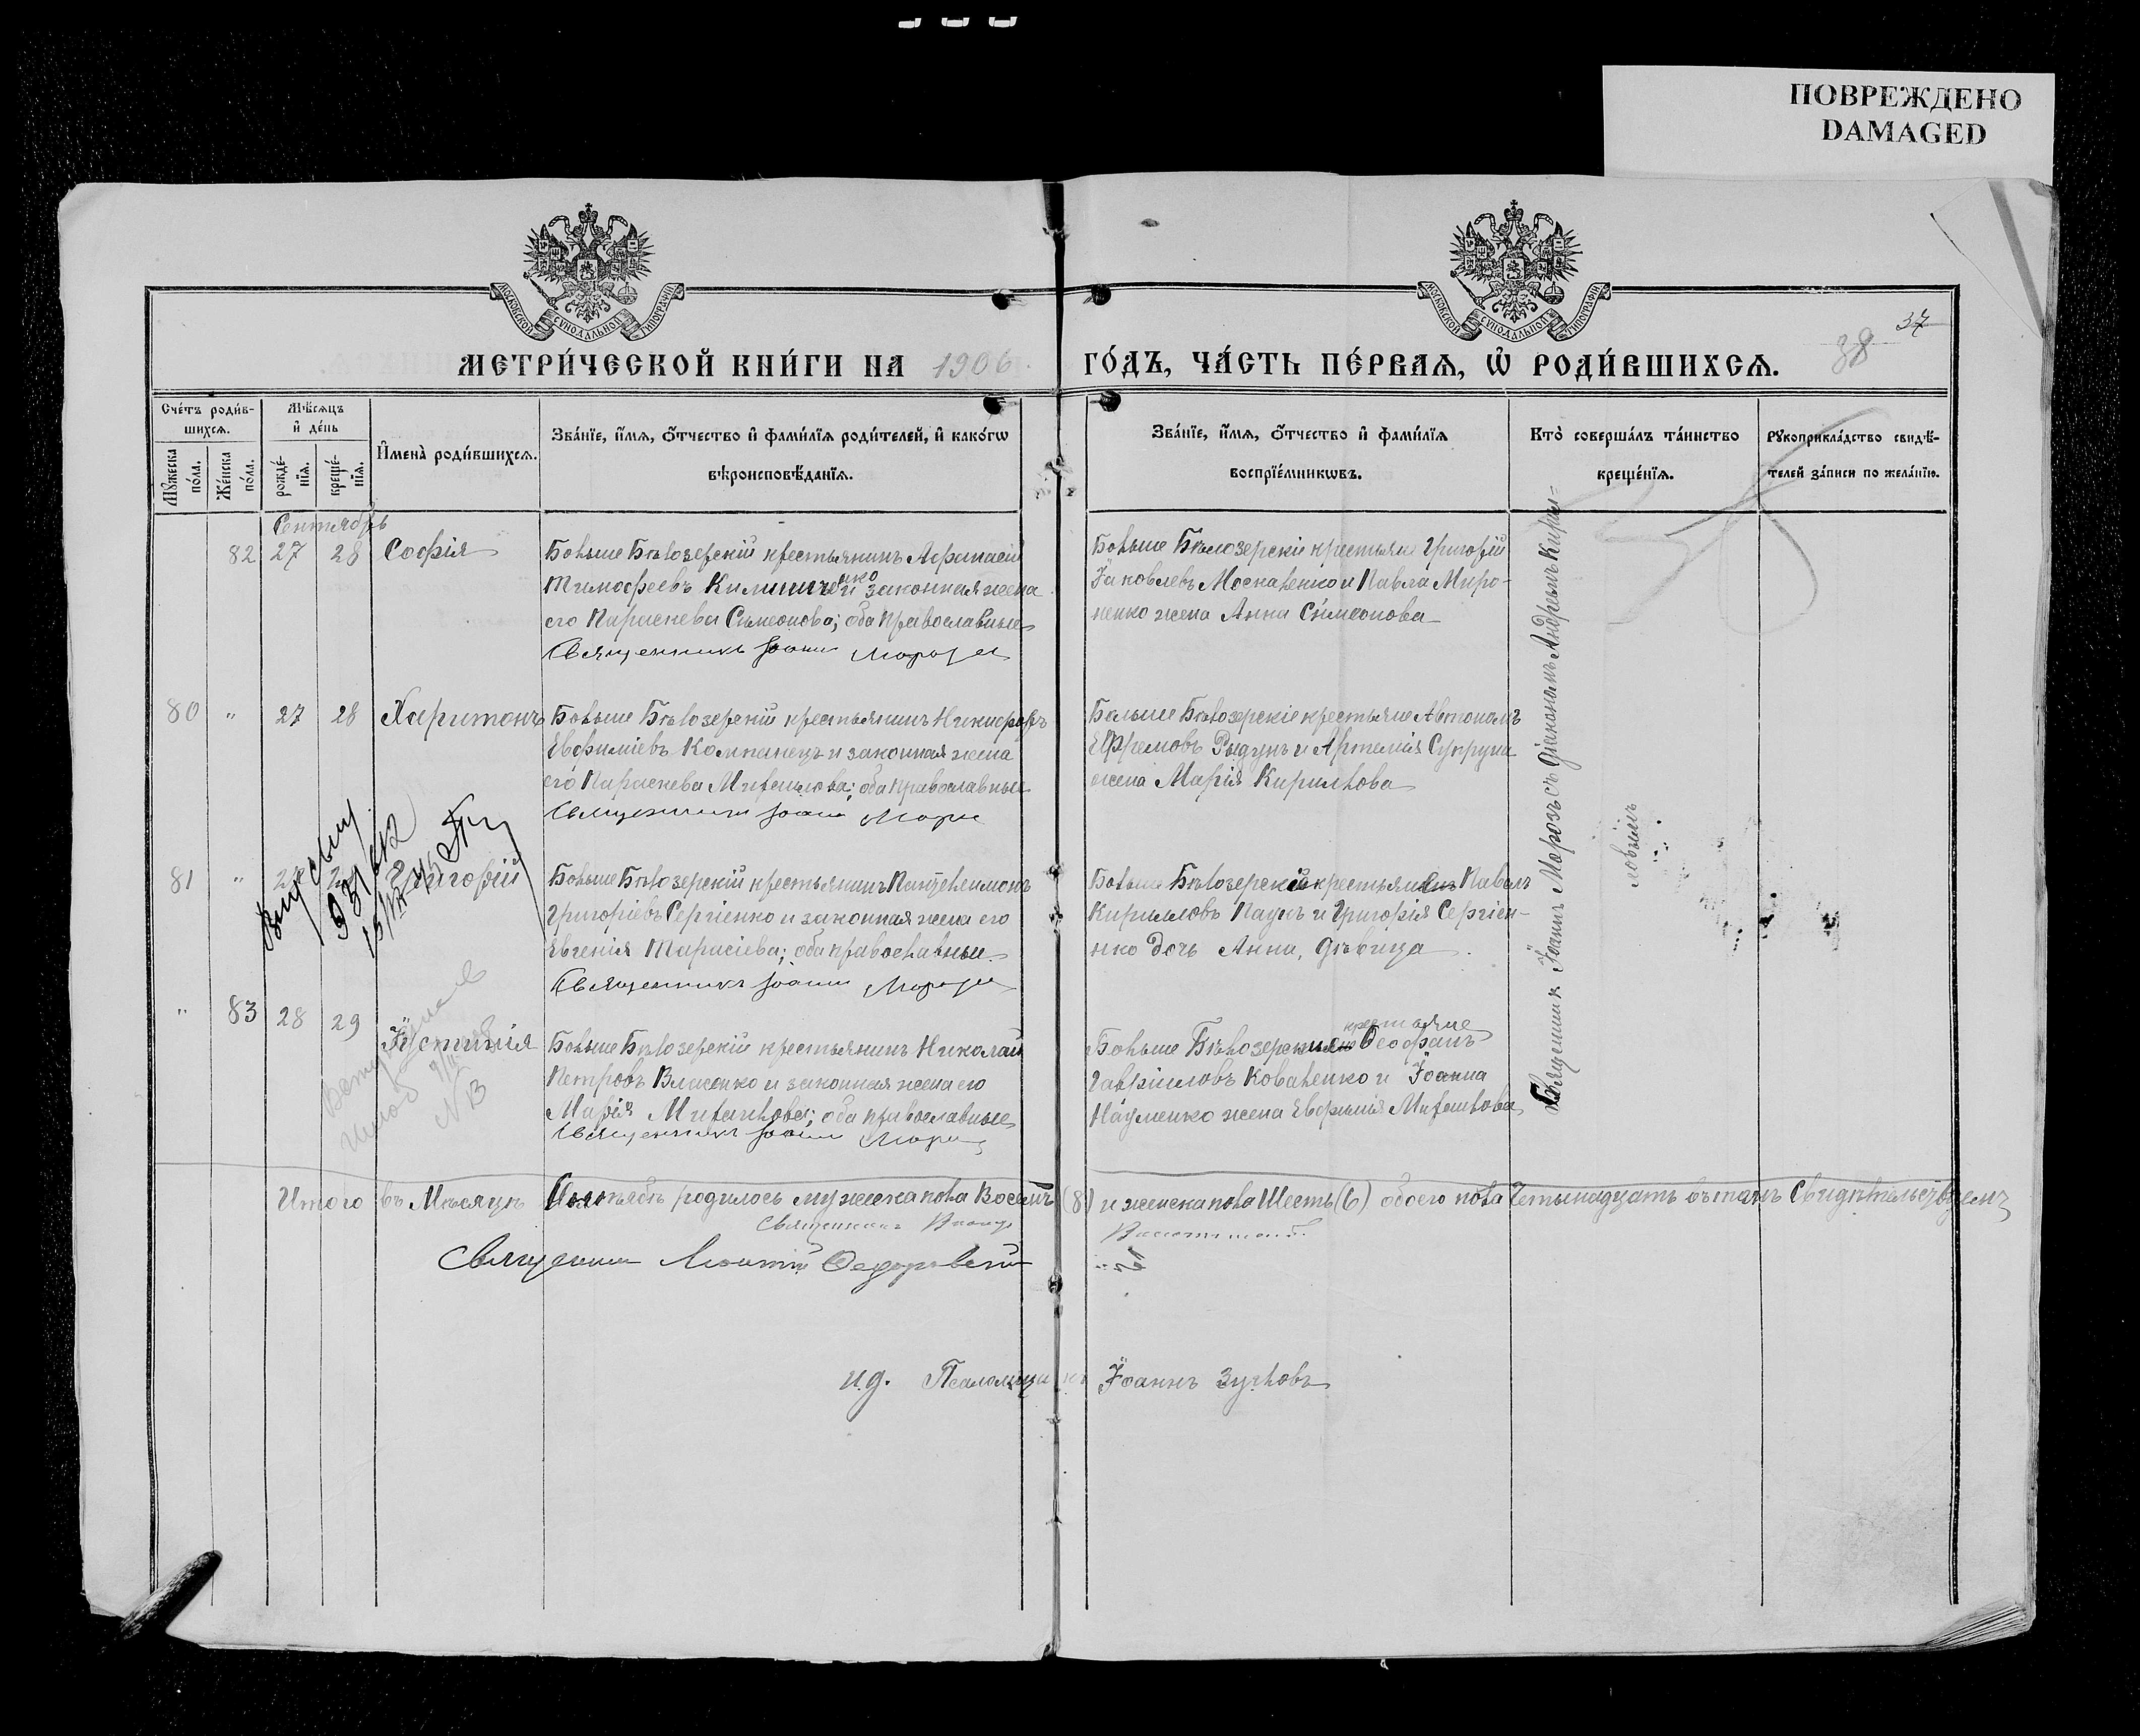 ПОВРЕЖДЕНО
DAMAGED
МОСКОВСКОЙ СѴНОДАЛЬНОЙ ТИПОГРАФІИ
МОСКОВСКОЙ СѴНОДАЛЬНОЙ ТИПОГРАФІИ
37
38
МЕТРИ́ЧЕСКОЙ КНИ́ГИ НА 1906 ГО́ДЪ, ЧА́СТЬ ПЕ́РВАѦ, Ѡ҆ РОДИ́ВШИХСѦ.
Сче́тъ роди́в-
шихсѧ.
Мꙋ́жеска по́ла.
Же́нска по́ла.
Мѣ́сѧцъ
и҆ де́нь
рожде́-
нїѧ.
креще́-
нїѧ.
И҆мена̀ роди́вшихсѧ.
Зва́нїе, и҆́мѧ, ѻ҆́тчество и҆ фамі́лїѧ роди́телей, и҆ како́гѡ
вѣроисповѣ́данїѧ.
Зва́нїе, и҆́мѧ, ѻ҆́тчество и҆ фамі́лїѧ
воспрїе́мникѡвъ.
Кто̀ соверша́лъ та́инство
креще́нїѧ.
Рꙋкоприкла́дство свидѣ́-
телей за́писи по жела́нїю.
Сентябрь
82 27 28 Софія
Больше Бѣлозерскій крестьянинъ Афанасій
Тимофеевъ и законная жена
его Параскева Симеонова; оба православные
Священникъ Іоаннъ Морозъ
Больше Бѣлозерскіе крестьяне Григорій
Іаковлевъ Москаленко и Павла Миро-
ненко жена Анна Симеонова
80 " 27 28 Харитонъ
Больше Бѣлозерскій крестьянинъ Никифоръ
Евфиміевъ Компанецъ и законная жена
его Параскева Михаилова; оба православные
Священникъ Іоаннъ Морозъ
Больше Бѣлозерскіе крестьяне Автономъ
Ефремовъ Рыдунъ и Артемія Супруна
жена Марія Кириллова
81 " Григорій
Больше Бѣлозерскій крестьянинъ Пантелеимонъ
Григоріевъ Сергіенко и законная жена его
Евгенія Тарасіева; оба православные.
Священникъ Іоаннъ Морозъ
Больше Бѣлозерскій крестьянинъ Павелъ
Кирилловъ Пауль и Григорія Сергіен-
нко дочь Анна, дѣвица.
" 83 28 29 Іустинія
Больше Бѣлозерскій крестьянинъ Николай
Петровъ Власенко и законная жена его
Марія Михаилова; оба православные
Священникъ Іоаннъ Морозъ
крестьяне
Больше Бѣлозерскіе Ѳеофанъ
Гавріиловъ Коваленко и Іоанна
Науменко жена Евфимія Михаилова
Священникъ Іоаннъ Морозъ съ Діакономъ Андреемъ Кирил=
ловымъ
№ 13
Итого въ Мѣсяцѣ родилось мужеска пола Восемь (8) и женска пола Шесть (6) обоего пола Четырнадцать въ томъ Свидѣтельствуемъ
Священникъ
Священникъ Леонтій Ѳедоровскій
и.д. Псаломщика Іоаннъ Зучковъ